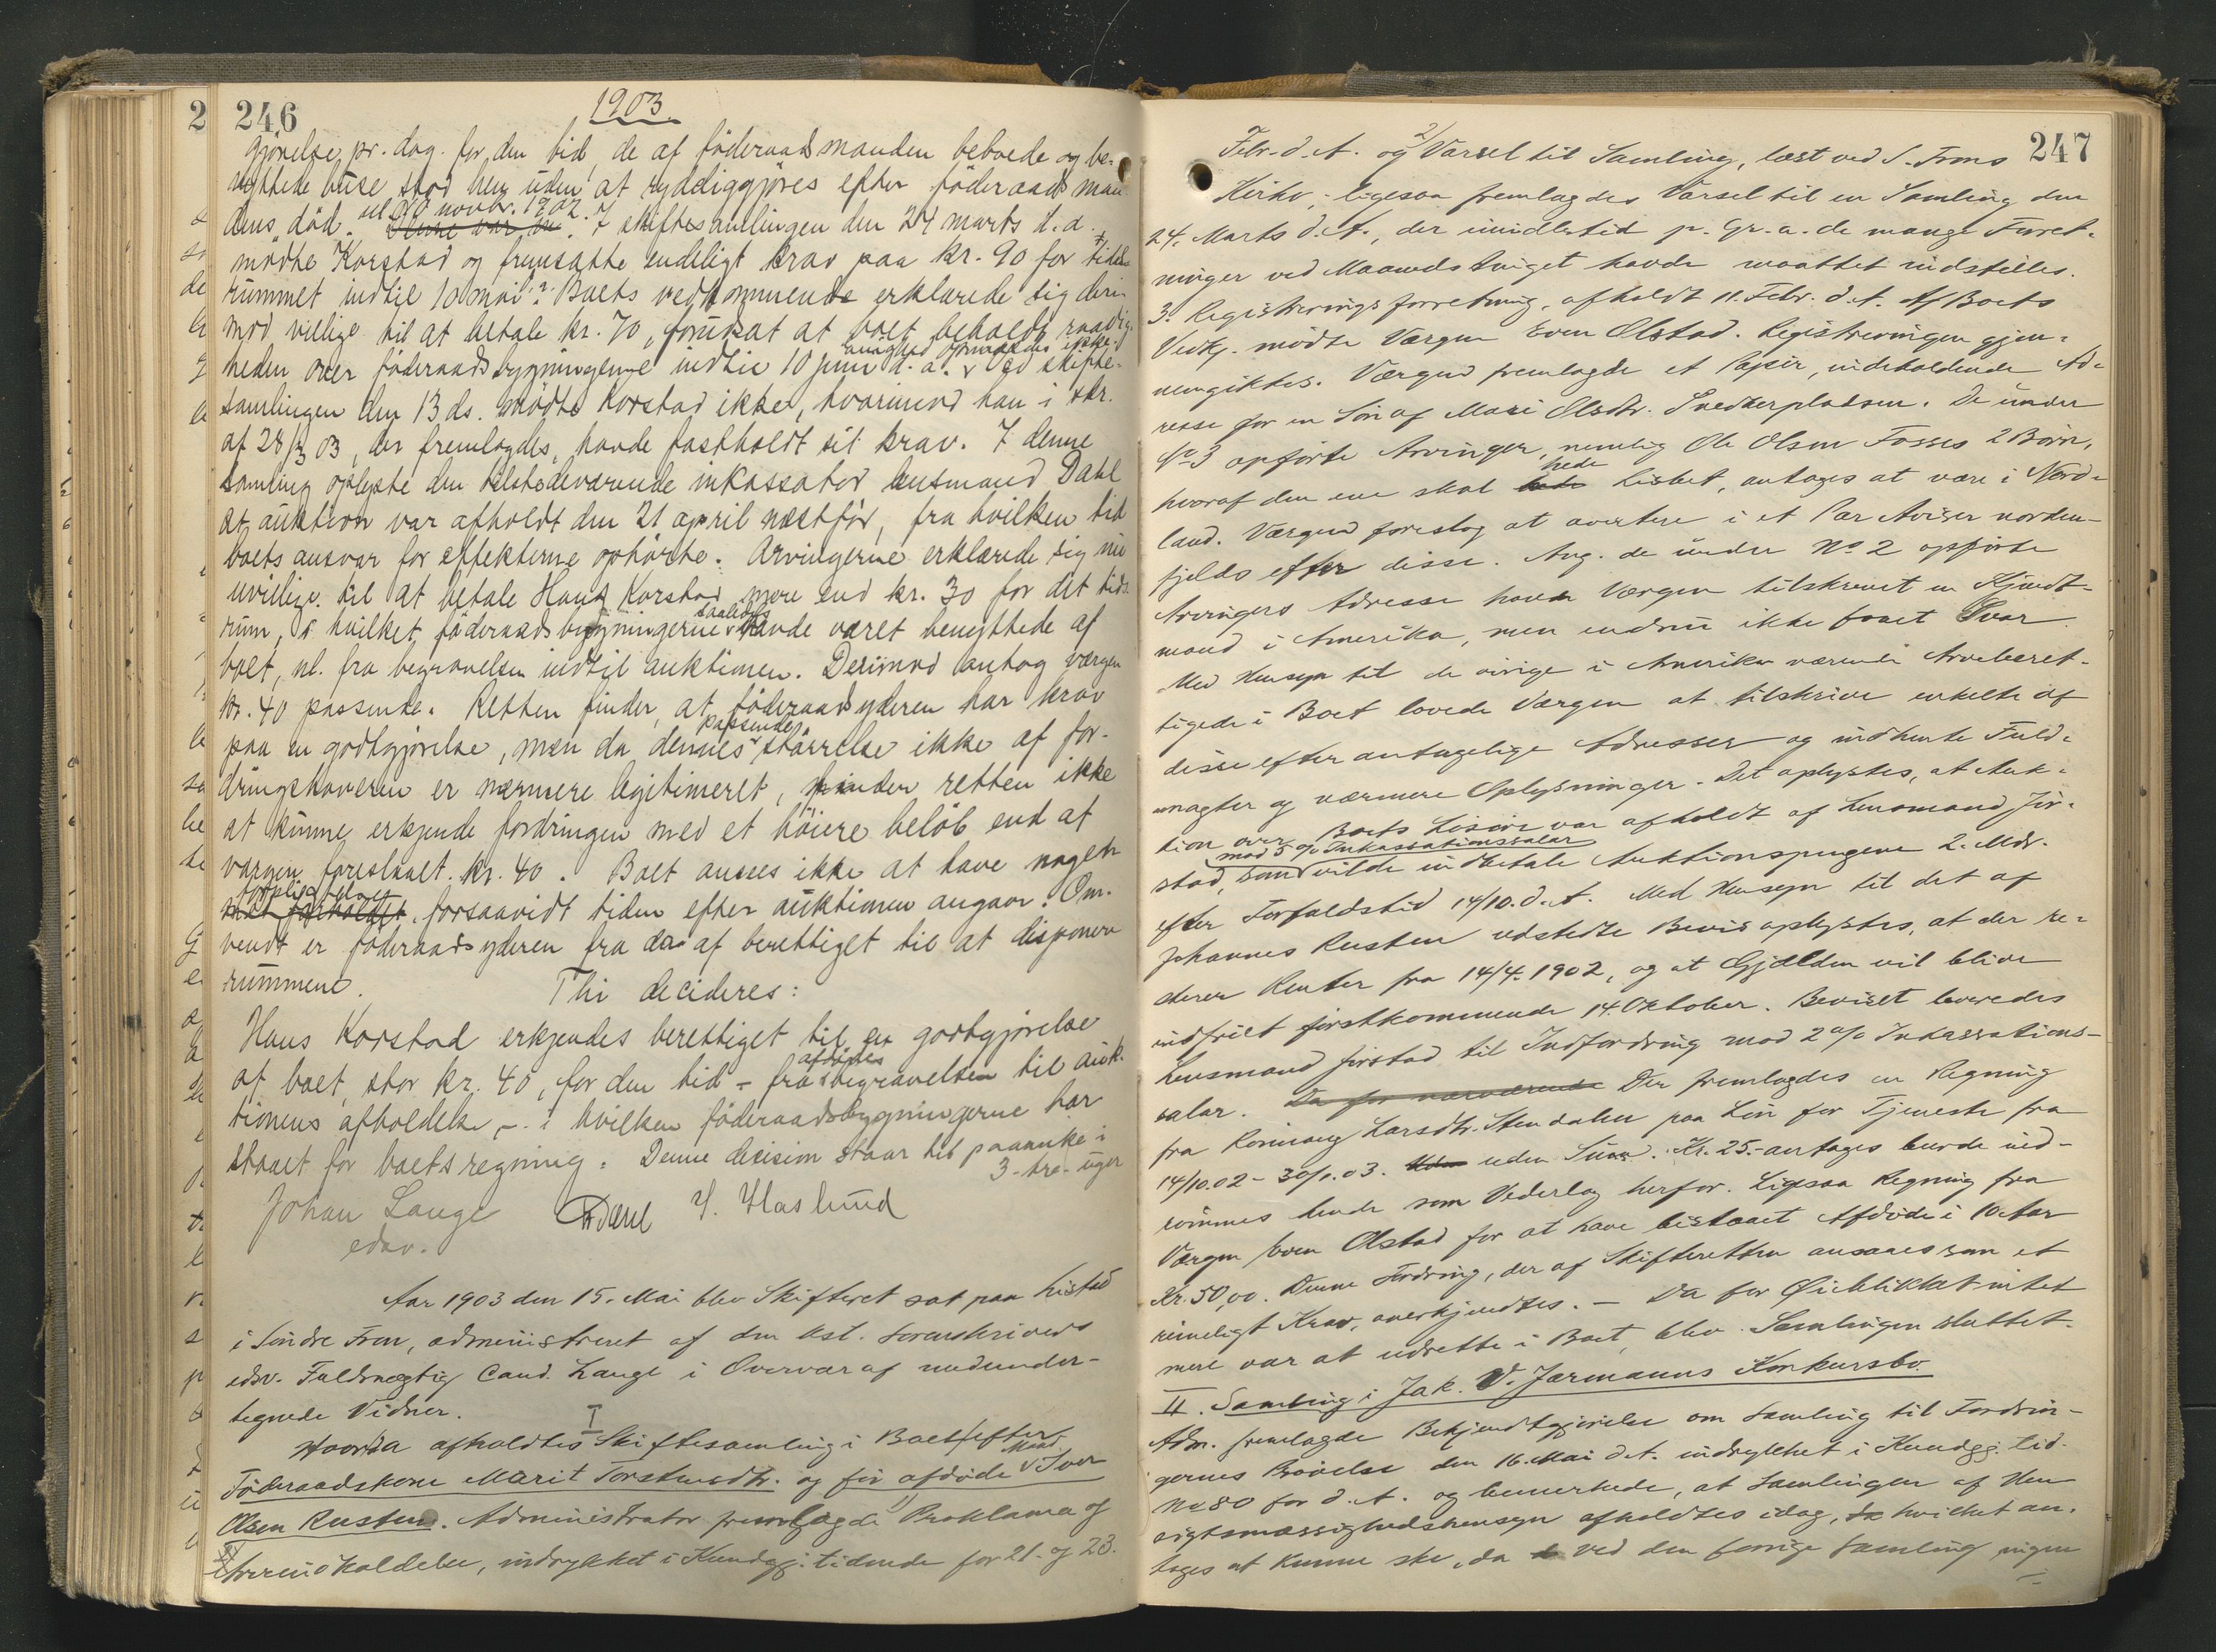 246
1903
gjörelse pr. dag for den tid, de af föderaadsmanden beboede og be-
nyttede huse stod hen uden at ryddiggjöres efter föderaadsman
dens död. til 20 novbr. 1902. Denne var en. I skiftesamlingen den 24 marts d.a.
mödte Korstad og fremsatte endeligt krav paa kr. 90 for tids
rummet indtil 10 mai. Boets vedkommende erklærede sig deri-
mod villige til at betale kr. 70, forudsat at boet beholdt raadig-
heden over föderaadsbygningerne indtil 10 juni d.a. enighed opnaaedes ikke. Ved skifte-
samlingen den 13 ds. mödte Korstad ikke, hvorimod han i skr.
af 28/3 03, der fremlagdes, havde fastholdt sit krav. I denne
samling oplyste den tilstedeværende inkassator lensmand Dahl
at auktion var afholdt den 21 april næstfor, fra hvilken tid
boets ansvar for effekterne ophörte. Arvingerne erklærede sig nu
uvillige til at betale Hans Korstad mere end kr. 30 for det tids-
rum, i hvilket föderaadsbygningerne saaledes havde været benyttede af
boet, nl. fra begravelsen indtil auktionen. Derimod antog værgen
kr. 40 passende. Retten finder, at föderaadsyderen har krav
paa en godtgjörelse, men da dennes passende störrelse ikke af for-
dringshaveren er nærmere legitimeret, finder retten ikke
at kunne erkjende fordringen med et höiere belöb end af
værgen foreslaaet kr. 40. Boet ansees ikke at have nogen
forpligtelse forsaavidt tiden efter auktionen angaar. Om-
vendt er föderaadsyderen fra da af berettiget til at disponere
rummene.
Thi decideres:
Hans Korstad erkjendes berettiget til en godtgjörelse
af boet, stor kr. 40, for den tid - fra afdödes begravelse til auk-
tionens afholdelse - i hvilken föderaadsbygningerne har
staaet for boets regning. Denne decision staar til paaanke i
3 - tre - uger
Johan Lange
edsv.
Dahl H. Haslund
Aar 1903 den 15. Mai blev Skifteret sat paa Listad
i Söndre Fron, administreret af den kst. Sorenskrivers
edsv. Fuldmægtig Cand. Lange i Overvær af nedunder-
tegnede Vidner.
I
Hvorda afholdtes Skiftesamling i Boet efter
Föderaadskone Marit Torstensdtr. og för afdöde Mand Iver
Olsen Rusten. Administrator fremlagde 1) Proklama og
Arveindkaldelse, indrykket i Kundgj. tidende for 21. og 23.
247
Febr. d.A. og 2) Varsel til Samling, læst ved S. Frons
Kirke, - ligesaa fremlagdes Varsel til en Samling den
24. Marts d.A., der imidlertid p. Gr. a. de mange Forret-
ninger ved Maanedstinget havde maattet indstilles.
3. Registreringsforretning, afholdt 11. Febr. d.A. Af Boets
Vedkj. mödte Værgen Even Olstad. Registreringen gjen-
nemgikkes. Værgen fremlagde et Papir, indeholdende Ad-
resse for en Sön af Mari Olsdtr. Snedkerpladsen. De under
No 3 opförte Arvinger, nemlig Ole Olsen Fosses 2 Börn,
hvoraf den ene skal hede Lisbet, antages at være i Nord-
land. Værgen foreslog at avertere i et Par Aviser norden-
fjelds efter disse. Ang. de under No 2 opförte
Arvingers Adresse havde Værgen tilskrevet en Kjendt-
mand i Amerika, men endnu ikke faaet Svar
Med Hensyn til de övrige i Amerika værende Arveberet-
tigede i Boet lovede Værgen at tilskrive enkelte af
disse efter antagelige Adresser og indhente Fuld-
magter og nærmere Oplysninger. Det oplystes, at Auk-
tion over Boets Lösöre var afholdt af Lensmand Jir-
stad, som mod 5 % Inkassationssalar vilde indbetale Auktionspengene 2. Mdr.
efter Forfaldstid 14/10. d.A. Med Hensyn til det af
Johannes Rusten udstedte Bevis oplystes, at der re-
sterer Renter fra 14/4. 1902, og at Gjælden vil blive
indfriet förstkommende 14. Oktober. Beviset leveredes
Lensmand Jirstad til Indfordring mod 2 % Inkassations-
salar. Da for nærværende Der fremlagdes en Regning
fra Rönnaug Larsdtr. Stendalen paa Lön for Tjeneste fra
14/10.02 - 30/1.03. uden Sum. Kr. 25.- antages burde ind-
römmes hende som Vederlag herfor. Ligesaa Regning fra
Værgen Even Olstad for at have bistaaet Afdöde i 10 Aar
Kr. 50,00. Denne Fordring, der af Skifteretten ansaaes som et
rimeligt Krav, anerkjendtes. - Da for Öieblikket intet
mere var at udrette i Boet, blev Samlingen sluttet.
II. Samling i Jak. V. Jarmanns Konkursbo.
Adm. fremlagde Bekjendtgjörelse om Samling til Fordrin-
gernes Prövelse den 16. Mai d.A. indrykket i Kundgj. tid.
No 80 for d.A. og bemerkede, at Samlingen af Hen
sigtsmæssighedshensyn afholdtes idag, hvilket an-
tages at kunne ske, da ved den forrige Samling ingen